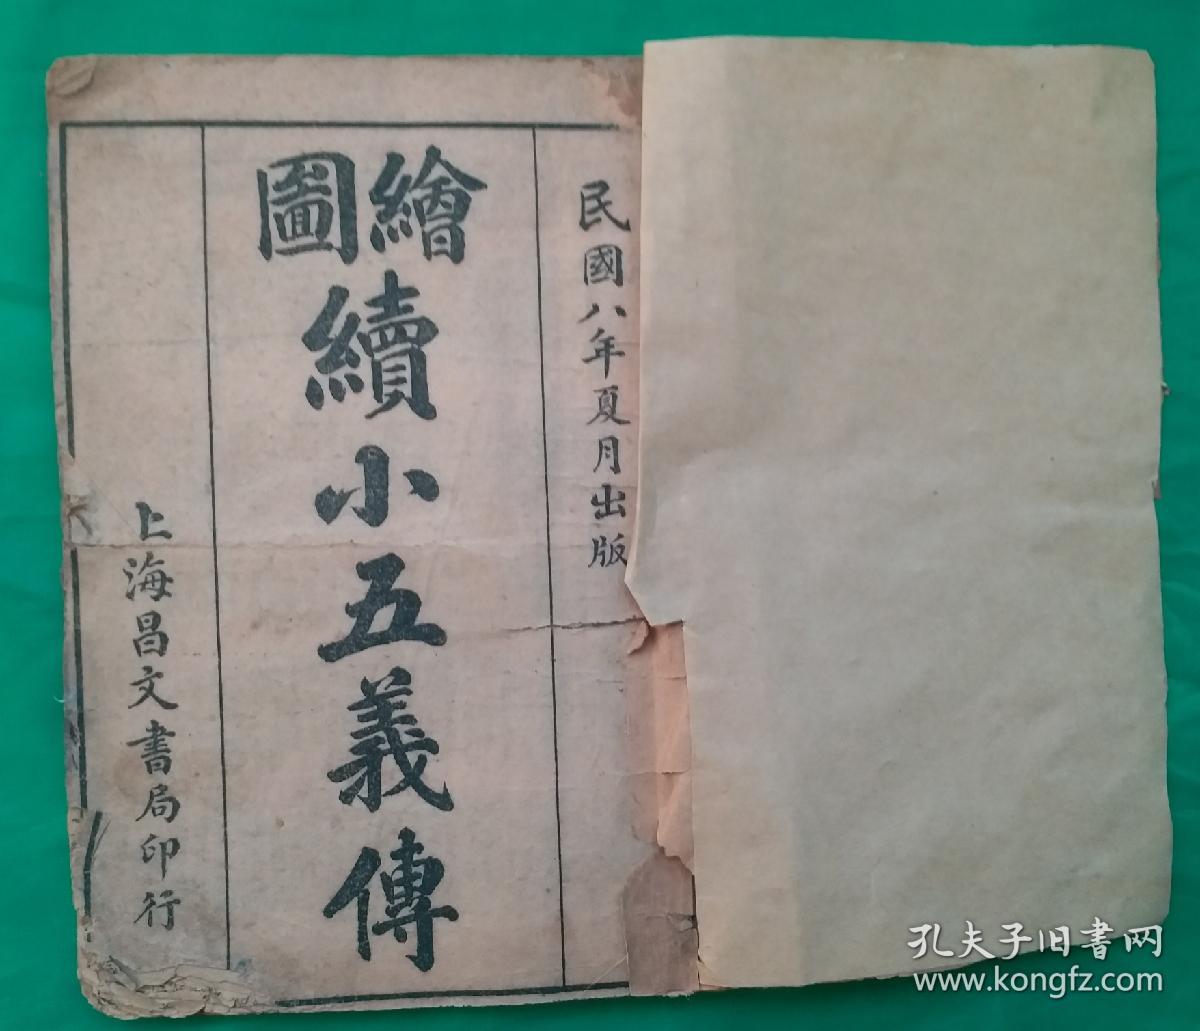 民國八年夏月出版
繪圖
續小五義傳
上海昌文書局印行
孔夫子旧書网
www.kongfz.com